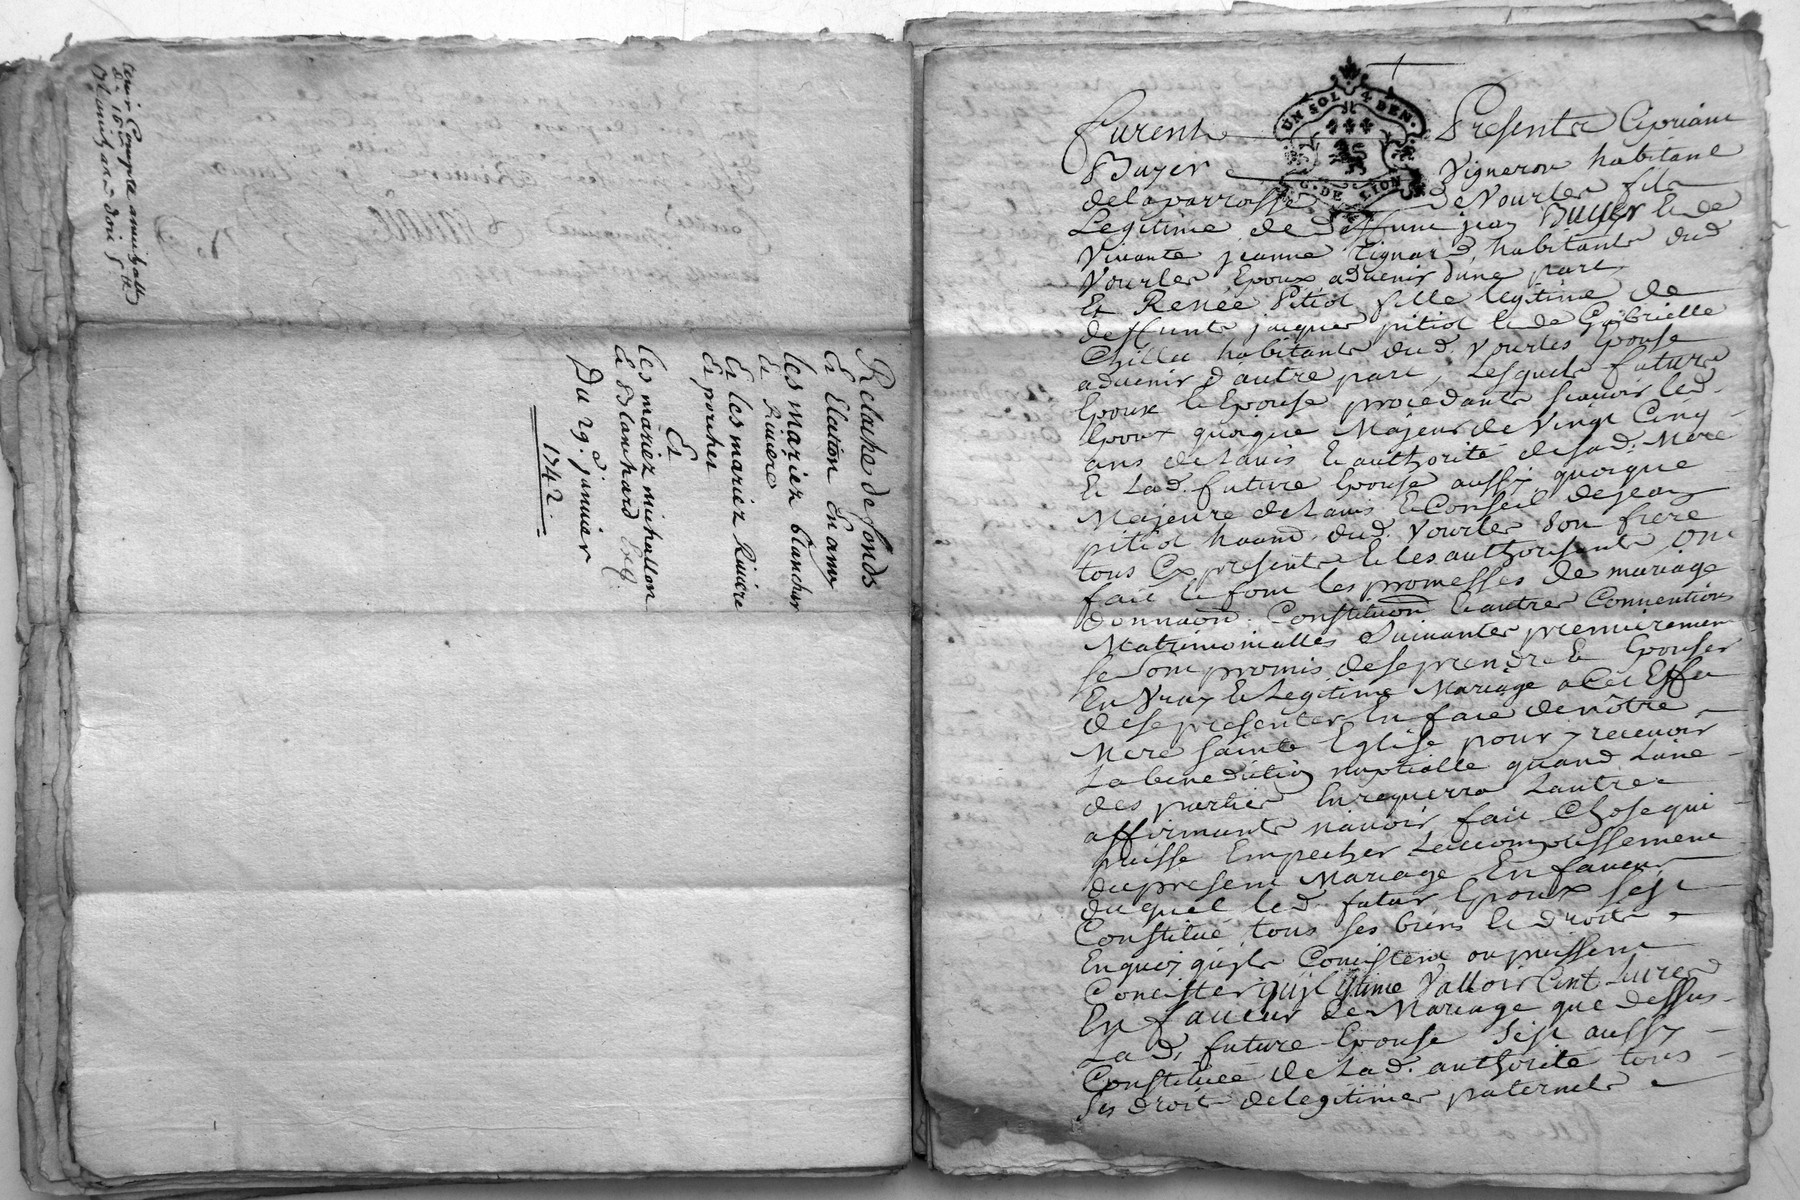 Relache de fonds
Et Elaction En amy
les mariez blanchar
de Riviere
Et les mariez Riviere
de poricher
Et
les mariez michallon
et Blanchard
Du 29e janvier
1742.
UN SOL 4 DEN.
G. DE LION
furent Presents Cipriain
Buyer Vigneron habitant
de la parroisse de Vourles fils
Legitime de deffunt jean Buyer et de
Vivante jeanne habitante dud.
Vourles Epoux advenir d'une part
Et Renée Pitiot fille legitime de
deffunt jacques pitiot et de Gabrielle
habitante dud. Vourles Epouse
advenir d'autre part, Lesquels futurs
Epoux et Epouse procedants scavoir led.
Epoux quoique Majeur de Vingt Cinq
ans de Lavis et authorité de sad. Mere
Et Lad. future Epouse aussy quoique
Majeure de Lavis et Conseil de jean
pitiot dud. Vourles son frere
tous Cy presents et les authorisants ont
fait et font les promesses de mariage
donnaon. Constituon et autres Conventions
Matrimonialles Suivantes premierement
se sont promis de se prendre et Epouser
En Vray et Legitime Mariage a Cet Effet
de se presenter En face de nôtre
Mere Sainte Eglise pour y recevoir
La benediction nuptialle quand Lune
des parties En requerra Lautre
affirmants n'avoir fait Chose qui
puisse Empecher Laccomplissement
du present Mariage En faveur
duquel led. futur Epoux sest
Constitué tous ses biens et droits
En quoy quils Consistent ou puissent
Concister quil Estime Valloir Cent Livres
En faveur de Mariage que dessus
La d. future Epouse sest aussy
Constituée de Lad. authorité tous
Ses droits de legitimes paternels